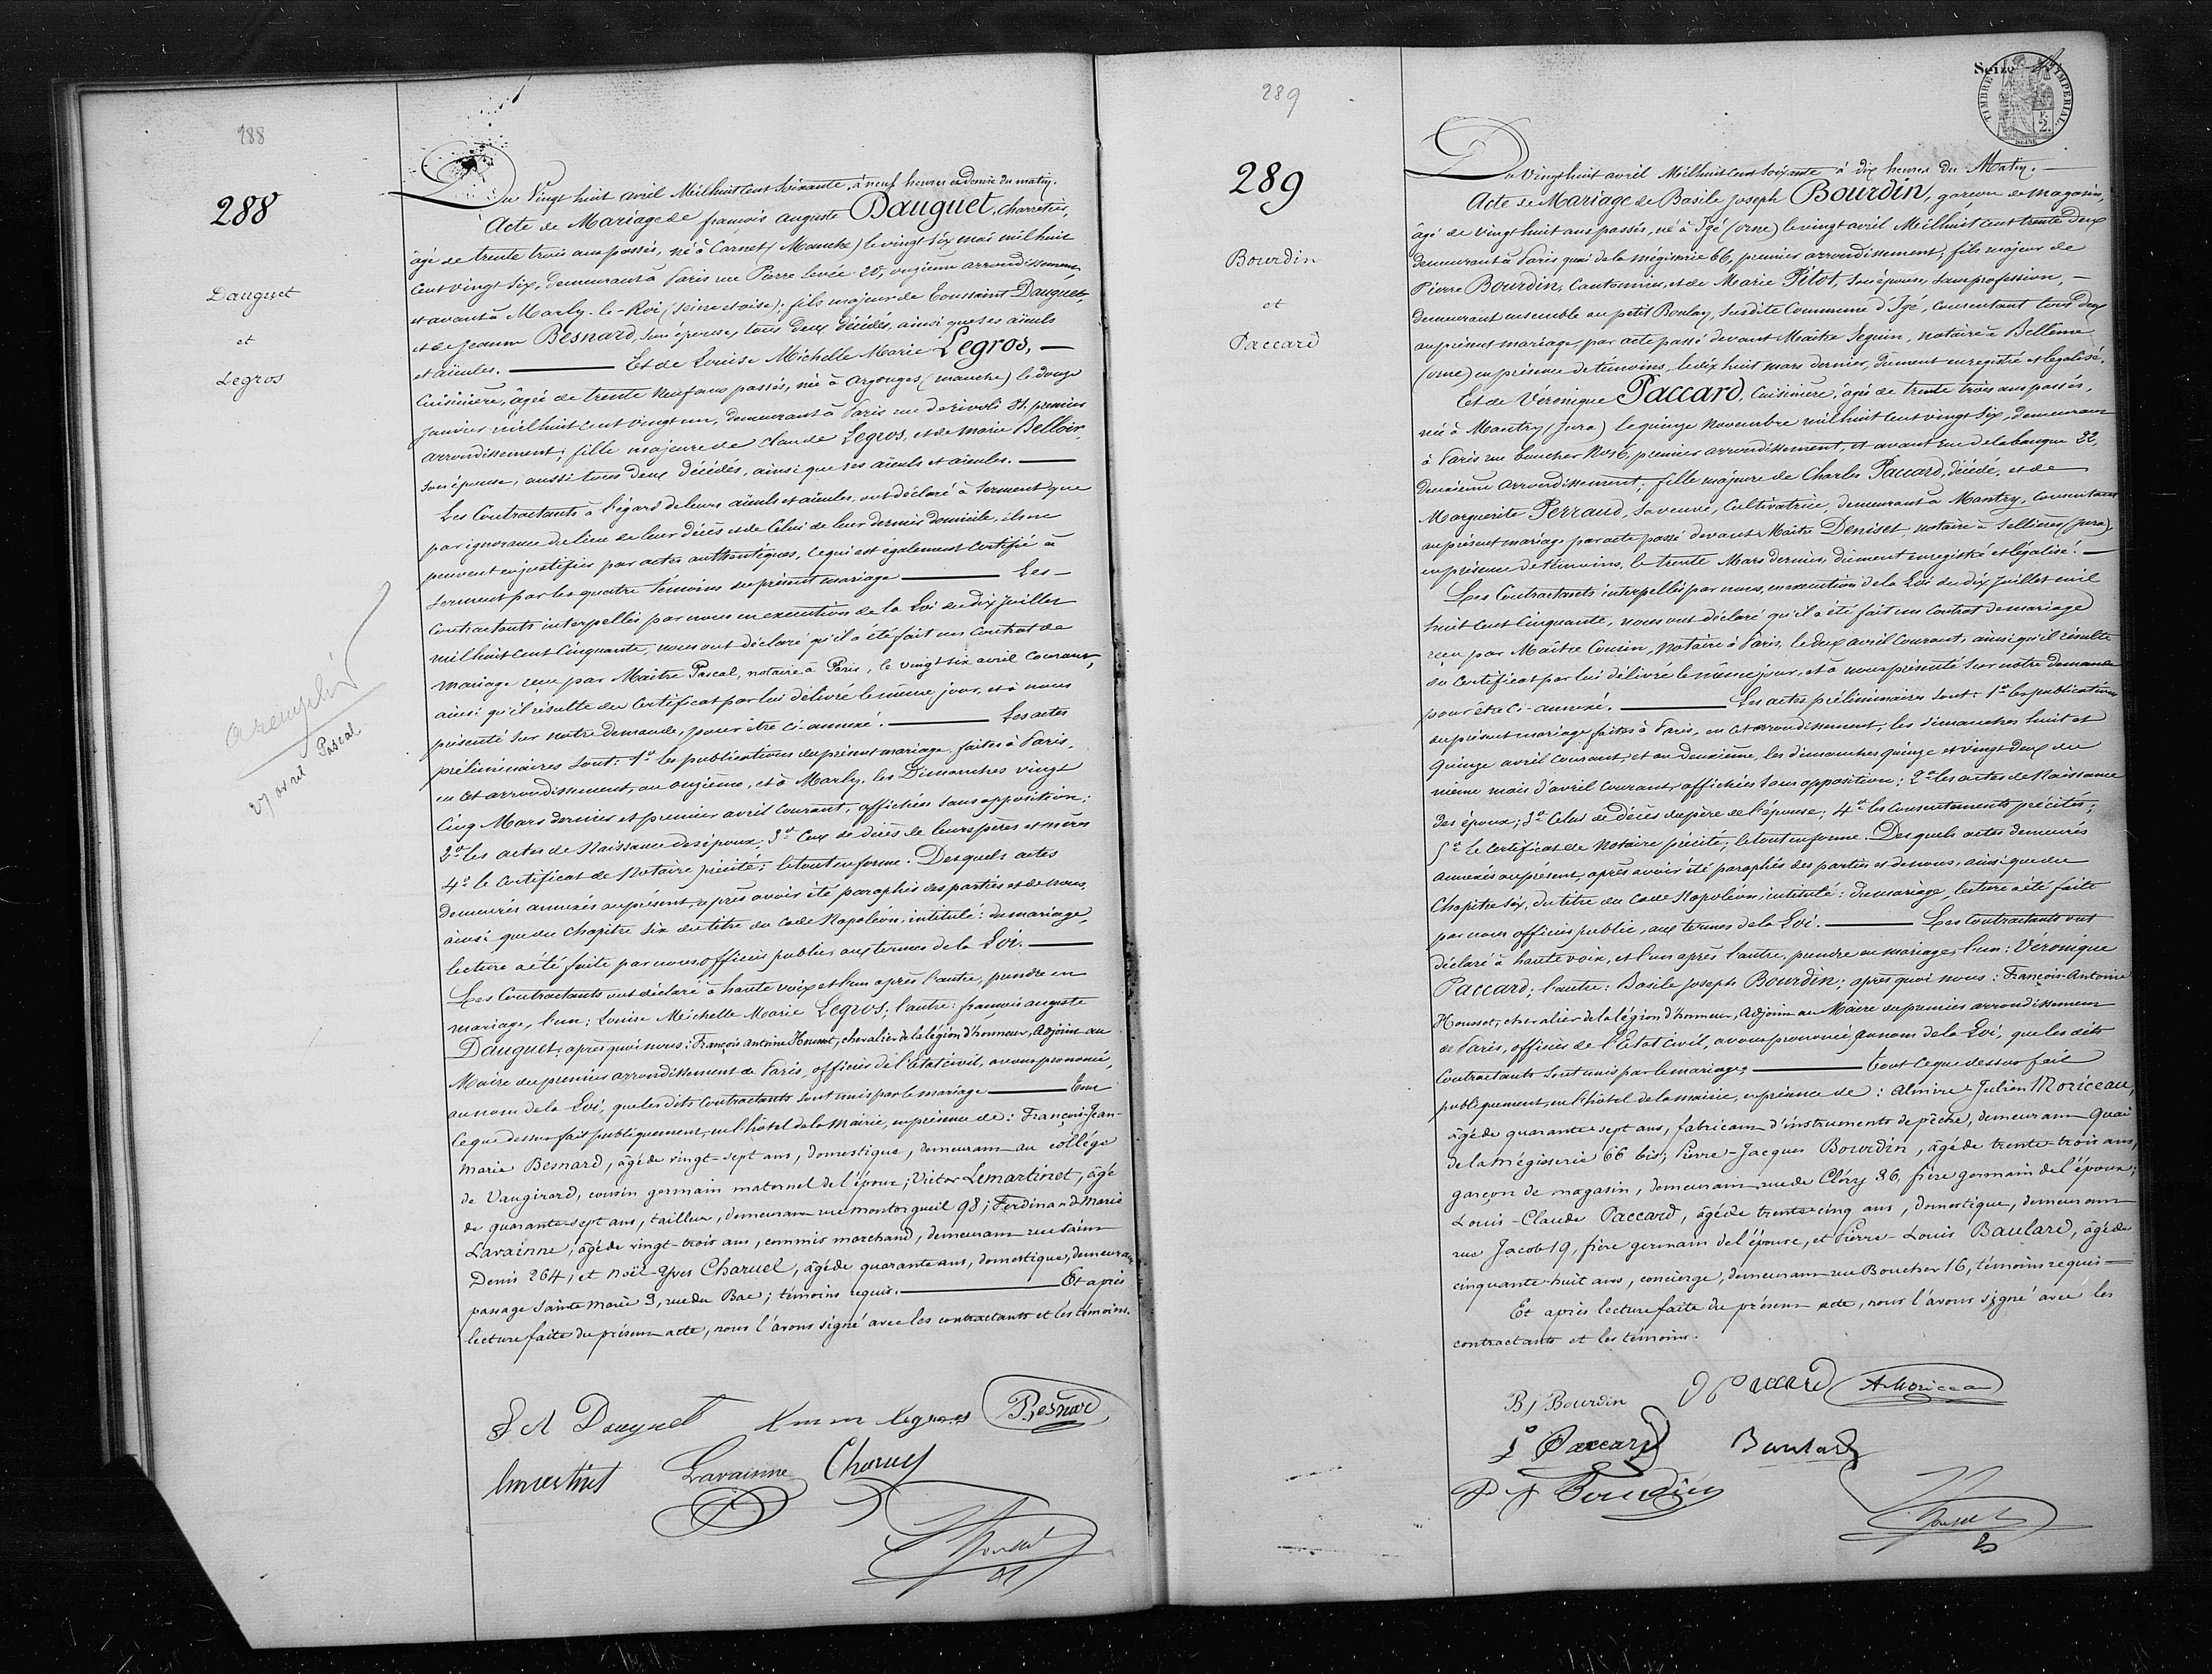 288
288
Dauguet
et
Legros
a remplir
27 avril Pascal
Du Vingt huit avril Mil huit cent Soixante, à neuf heures et demie du matin.
Acte de Mariage de françois auguste Dauguet, charretier,
âgé de trente trois ans passés, né à Carnet (Manche) le vingt six mai mil huit
cent vingt six, demeurant à Paris rue Pierre levée 20, onzième arrondissement,
et avant à Marly-le-Roi (Seine et oise); fils majeur de Toussaint Dauguet,
et de Jeanne Besnard, son épouse, tous deux décédés, ainsi que ses aïeuls
et aïeules. Et de Louise Michelle Marie Legros,
Cuisinière, âgée de trente neuf ans passés, née à Argouges (manche) le douze
janvier mil huit cent vingt un, demeurant à Paris rue de rivoli premier
arrondissement; fille majeure de Claude Legros, et de Marie Belloir,
son épouse, aussi tous deux décédés, ainsi que ses aïeuls et aïeules.
Les Contractants à l'égard de leurs aïeuls et aïeules, ont déclaré à serment que
par ignorance du lieu de leur décès et de celui de leur dernier domicile, ils ne
peuvent en justifier par actes authentiques, ce qui est également certifié à
serment par les quatre témoins du présent mariage Les
contractants interpellés par nous en exécution de la Loi du dix Juillet
mil huit cent cinquante, nous ont déclaré qu'il a été fait un contrat de
mariage reçu par Maître Pascal, notaire à Paris, le vingt six avril courant,
ainsi qu'il résulte du certificat par lui délivré le même jour, et à nous
présenté sur notre demande, pour être ci-annexé. Les actes
préliminaires sont: 1º les publications du présent mariage, faites à Paris,
en cet arrondissement, au onzième, et à Marly, les Dimanches vingt
cinq Mars dernier et premier avril courant, affichées sans opposition;
2º les actes de Naissance des époux; 3º Ceux de décès de leurs pères et mères
4º le certificat de Notaire précité; le tout en forme. Desquels actes
demeurés annexés au présent, après avoir été paraphés des parties et de nous,
ainsi que du chapitre six du titre du code Napoléon, intitulé: du mariage,
lecture a été faite par nous officier public, aux termes de la Loi.
Les Contractants ont déclaré à haute voix et l'un après l'autre, prendre en
mariage, l'un; Louise Michelle Marie Legros; l'autre: françois auguste
Dauguet; après quoi nous: François Antoine Housset, chevalier de la légion d'honneur, Adjoint au
Maire du premier arrondissement de Paris, officier de l'Etat civil, avons prononcé,
au nom de la Loi, que les dits contractants sont unis par le mariage Tout
ce que dessus fait publiquement, en l'hôtel de la Mairie, en présence de: François-Jean-
Marie Besnard, âgé de vingt-sept ans, domestique, demeurant au collége
de Vaugirard, cousin germain maternel de l'époux; Victor Lemartinet, âgé
de quarante-sept ans, tailleur, demeurant rue montorgueil 98; Ferdinand-Marie
Lavainne, âgé de vingt-trois ans, commis marchand, demeurant rue saint
Denis 264; et Noël-Yves Charuel, âgé de quarante ans, domestique, demeurant
passage Sainte Marie 9, rue du Bac; témoins requis. Et après
lecture faite du présent acte, nous l'avons signé avec les contractants et les témoins.
Besnard
Lavainne Charuel
289
289
Bourdin
et
Paccard
TIMBRE IMPERIAL
SEINE
Du Vingt huit avril Mil huit cent soixante à dix heures du Matin.
Acte de Mariage de Basile Joseph Bourdin, garçon de magasin,
âgé de vingt huit ans passés, né à Igé (orne) le vingt avril Mil huit cent trente deux
demeurant à Paris quai de la mégisserie 66, premier arrondissement; fils majeur de
Pierre Bourdin, Cantonnier, et de Marie Pitot, son épouse, sans profession,
demeurant ensemble au petit Boulay, susdite Commune d'Igé, consentant tous deux
au présent mariage, par acte passé devant Maître Seguin, notaire à Bellême
(orne) en présence de témoins, le dix huit mars dernier, dûment enregistré et légalisé.
Et de Véronique Paccard, Cuisinière, âgée de trente trois ans passés,
née à Mantry (Jura) le quinze Novembre mil huit cent vingt six, demeurant
à Paris rue boucher Nº 16, premier arrondissement, et avant rue de la banque 22,
deuxième arrondissement; fille majeure de Charles Paccard, décédé, et de
Marguerite Perraud, sa veuve, Cultivatrice, demeurant à Mantry, consentant
au présent mariage par acte passé devant Maître Deniset, notaire à Sellières (Jura),
en présence de témoins, le trente Mars dernier, dûment enregistré et légalisé.
Les Contractants interpellés par nous, en exécution de la Loi du dix Juillet mil
huit cent cinquante, nous ont déclaré qu'il a été fait un contrat de mariage
reçu par Maître Cousin, Notaire à Paris, le deux avril courant, ainsi qu'il résulte
du certificat par lui délivré le même jour, et à nous présenté sur notre demande
pour être ci-annexé. Les actes préliminaires sont: 1º les publications
du présent mariage faites à Paris, en cet arrondissement, les dimanches huit et
quinze avril courant, et au deuxième, les dimanches quinze et vingt deux du
même mois d'avril courant, affichées sans opposition; 2º les actes de Naissance
des époux; 3º Celui de décès du père de l'épouse; 4º les consentements précités;
5º le certificat de Notaire précité; le tout en forme. Desquels actes demeurés
annexés au présent, après avoir été paraphés des parties et de nous, ainsi que du
Chapitre six, du titre du Code Napoléon, intitulé: du mariage, lecture a été faite
par nous officier public, aux termes de la Loi. Les Contractants ont
déclaré à haute voix, et l'un après l'autre, prendre en mariage, l'un: Véronique
Paccard; l'autre: Basile Joseph Bourdin; après quoi nous: François-Antoine
Housset, chevalier de la légion d'honneur, Adjoint au Maire du premier arrondissement
de Paris, officier de l'Etat Civil, avons prononcé, au nom de la Loi, que les dits
contractants sont unis par le mariage, Tout ce que dessus fait
publiquement, en l'hôtel de la mairie, en présence de: Almire Julien Moriceau,
âgé de quarante sept ans, fabricant d'instruments de pêche, demeurant Quai
de la mégisserie 66 bis; Pierre-Jacques Bourdin, âgé de trente-trois ans,
garçon de magasin, demeurant rue de Cléry 86, frère germain de l'époux;
Louis-Claude Paccard, âgé de trente-cinq ans, domestique, demeurant
rue Jacob 19, frère germain de l'épouse, et Pierre-Louis Baulard, âgé de
cinquante-huit ans, concierge, demeurant rue Boucher 16, témoins requis
Et après lecture faite du présent acte, nous l'avons signé avec les
contractants et les témoins.
BJ Bourdin V Paccard A Moriceau
Paccard Baulard
Bourdin